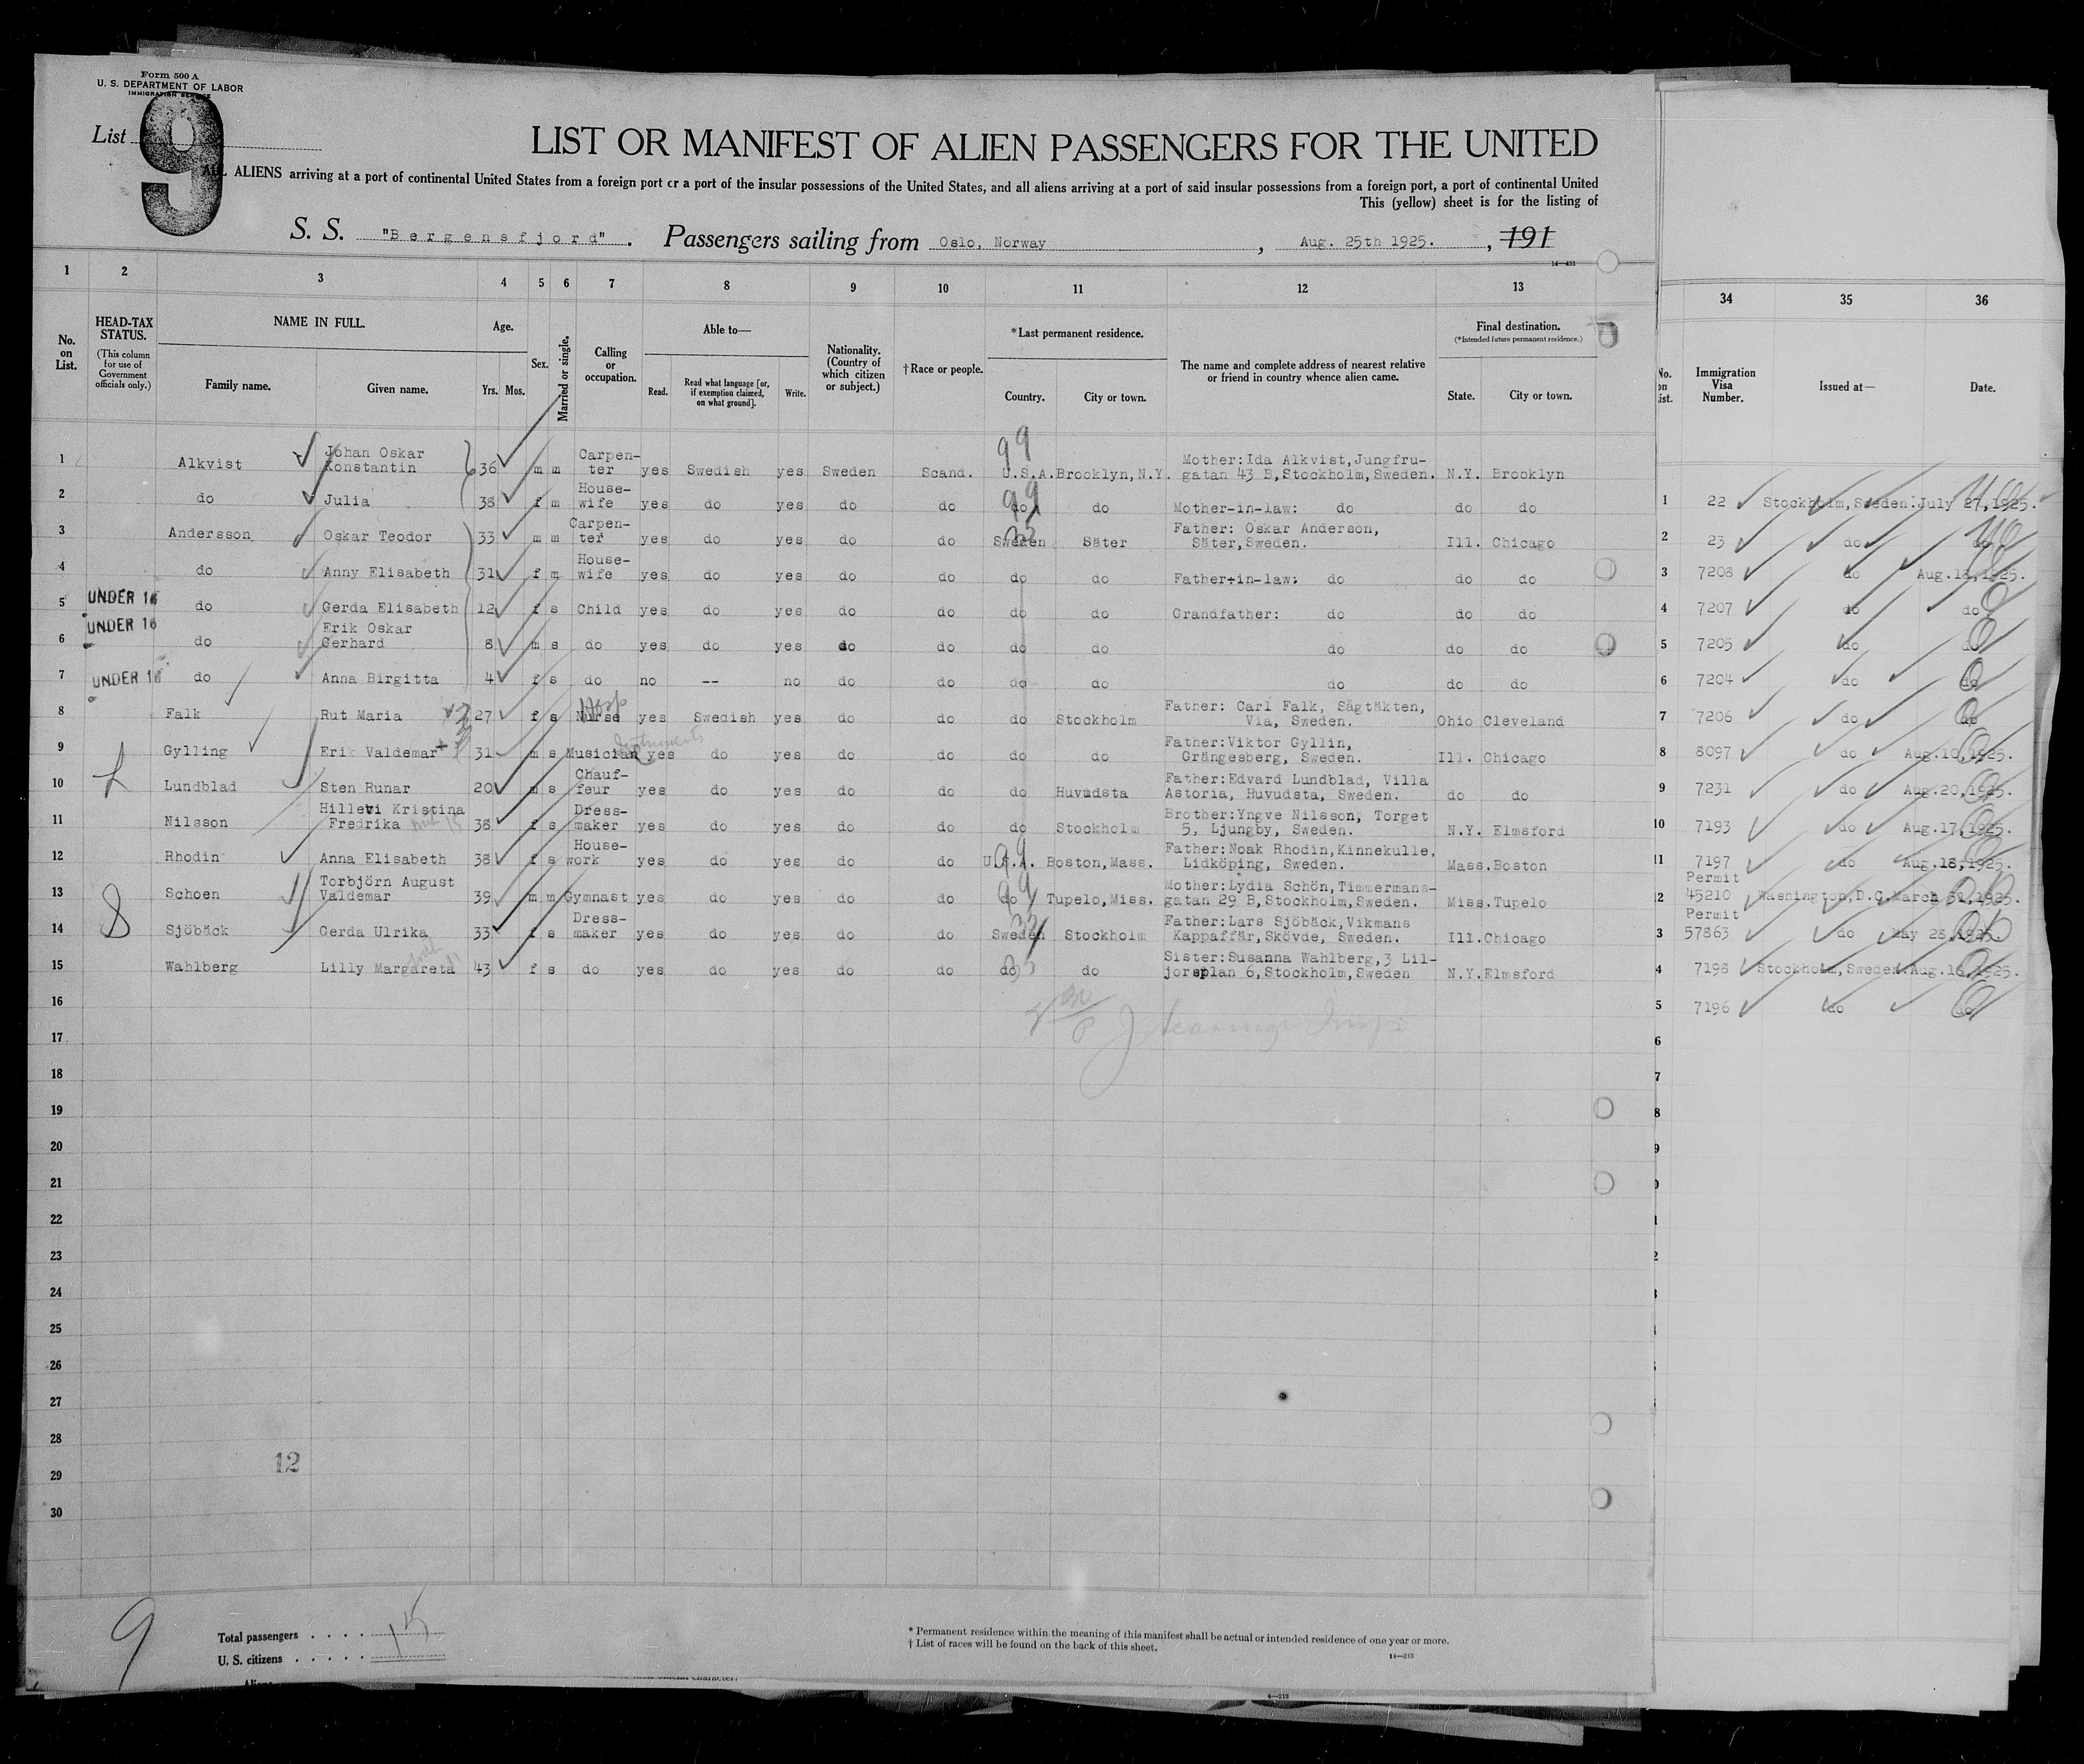 Form 500 A
U. S. DEPARTMENT OF LABOR
IMMIGRATION SERVICE
List 9
LIST OR MANIFEST OF ALIEN PASSENGERS FOR THE UNITED
ALL ALIENS arriving at a port of continental United States from a foreign port or a port of the insular possessions of the United States, and all aliens arriving at a port of said insular possessions from a foreign port, a port of continental United
This (yellow) sheet is for the listing of
S. S. "Bergensfjord". Passengers sailing from Oslo, Norway, Aug. 25th 1925., 191
14—431
1 2 3 4 5 6 7 8 9 10 11 12 13 34 35 36
No. on List.
HEAD-TAX STATUS.
(This column for use of Government officials only.)
NAME IN FULL.
Family name. Given name.
Age.
Yrs. Mos.
Sex.
Married or single.
Calling or occupation.
Able to—
Read. Read what language [or, if exemption claimed, on what ground]. Write.
Nationality. (Country of which citizen or subject.)
†Race or people.
*Last permanent residence.
Country. City or town.
The name and complete address of nearest relative or friend in country whence alien came.
Final destination.
(*Intended future permanent residence.)
State. City or town.
No. on List.
Immigration Visa Number.
Issued at—
Date.
1 Alkvist Johan Oskar Konstantin 36 m m Carpenter yes Swedish yes Sweden Scand. U.S.A. Brooklyn, N.Y. Mother:Ida Alkvist,Jungfrugatan 43 B,Stockholm,Sweden. N.Y. Brooklyn
2 do Julia 38 f m House-wife yes do yes do do do do Mother-in-law: do do do
3 Andersson Oskar Teodor 33 m m Carpen-ter yes do yes do do Sweden Säter Father: Oskar Anderson, Säter,Sweden. Ill. Chicago
4 do Anny Elisabeth 31 f m House-wife yes do yes do do do do Father-in-law: do do do
5 UNDER 16 do Gerda Elisabeth 12 f s Child yes do yes do do do do Grandfather: do do do
6 UNDER 16 do Erik Oskar Gerhard 8 m s do yes do yes do do do do do do do
7 UNDER 16 do Anna Birgitta 4 f s do no -- no do do do do do do do
8 Falk Rut Maria 27 f s Nurse yes Swedish yes do do do Stockholm Father: Carl Falk, Sågtäkten, Via, Sweden. Ohio Cleveland
9 Gylling Erik Valdemar 31 m s Musician yes do yes do do do do Father:Viktor Gyllin, Grängesberg, Sweden. Ill. Chicago
10 Lundblad Sten Runar 20 m s Chauf-feur yes do yes do do do Huvudsta Father:Edvard Lundblad, Villa Astoria, Huvudsta, Sweden. do do
11 Nilsson Hillevi Kristina Fredrika 38 f s Dress-maker yes do yes do do do Stockholm Brother:Yngve Nilsson, Torget 5, Ljungby, Sweden. N.Y. Elmsford
12 Rhodin Anna Elisabeth 38 f s House-work yes do yes do do U.S.A. Boston,Mass. Father:Noak Rhodin,Kinnekulle, Lidköping, Sweden. Mass. Boston
13 Schoen Torbjörn August Valdemar 39 m m Gymnast yes do yes do do do Tupelo,Miss. Mother:Lydia Schön,Timmermans-gatan 29 B,Stockholm,Sweden. Miss. Tupelo
14 Sjöbäck Gerda Ulrika 33 f s Dress-maker yes do yes do do Sweden Stockholm Father:Lars Sjöbäck,Vikmans Kappaffär,Skövde, Sweden. Ill. Chicago
15 Wahlberg Lilly Margareta 43 f s do yes do yes do do do do Sister:Susanna Wahlberg,3 Lil-jorsplan 6,Stockholm,Sweden N.Y. Elmsford
16
17
18
19
20
21
22
23
24
25
26
27
28
29
30
12
1 22 Stockholm,Sweden. July 27,1925.
2 23 do do
3 7208 do Aug.18,1925.
4 7207 do do
5 7205 do do
6 7204 do do
7 7206 do do
8 8097 do Aug.10,1925.
9 7231 do Aug.20,1925.
10 7193 do Aug.17,1925.
11 7197 do Aug.18,1925.
12 Permit 45210 Washington,D.C. March 31,1925.
13 Permit 57863 do May 28,1925.
14 7198 Stockholm,Sweden. Aug.18,1925.
15 7196 do do
9
Total passengers . . . . 15
U. S. citizens . . . . .
* Permanent residence within the meaning of this manifest shall be actual or intended residence of one year or more.
† List of races will be found on the back of this sheet.
14—213